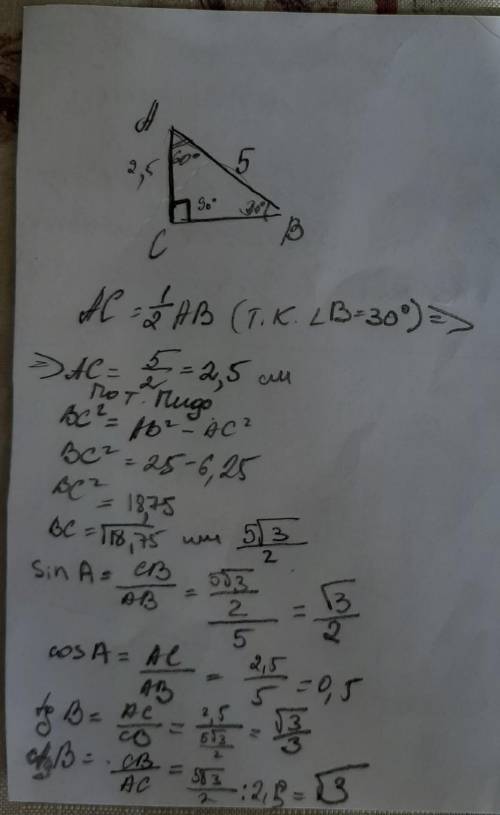 A
2,5
60°
5
90°
30°
C
B
AC = 1/2 AB (т.к. ∠B=30°) =>
=> AC = 5/2 = 2,5 см
По т. Пифо
BC² = AB² - AC²
BC² = 25 - 6,25
BC² = 18,75
BC = √18,75 или 5√3/2
sin A = CB/AB = (5√3/2)/5 = √3/2
cos A = AC/AB = 2,5/5 = 0,5
tg B = AC/CB = 2,5/(5√3/2) = √3/3
ctg B = CB/AC = 5√3/2 : 2,5 = √3